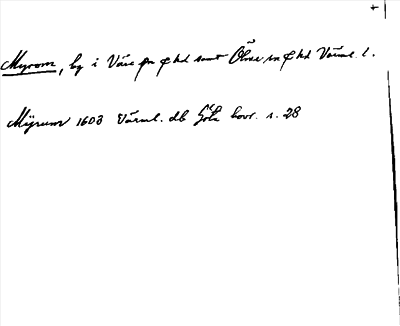 +
Myrom, by i Väse sn o hd samt Ölme sn o hd Värml. l.
Mÿrum 1603 Värml. db Göta hovr. s. 28